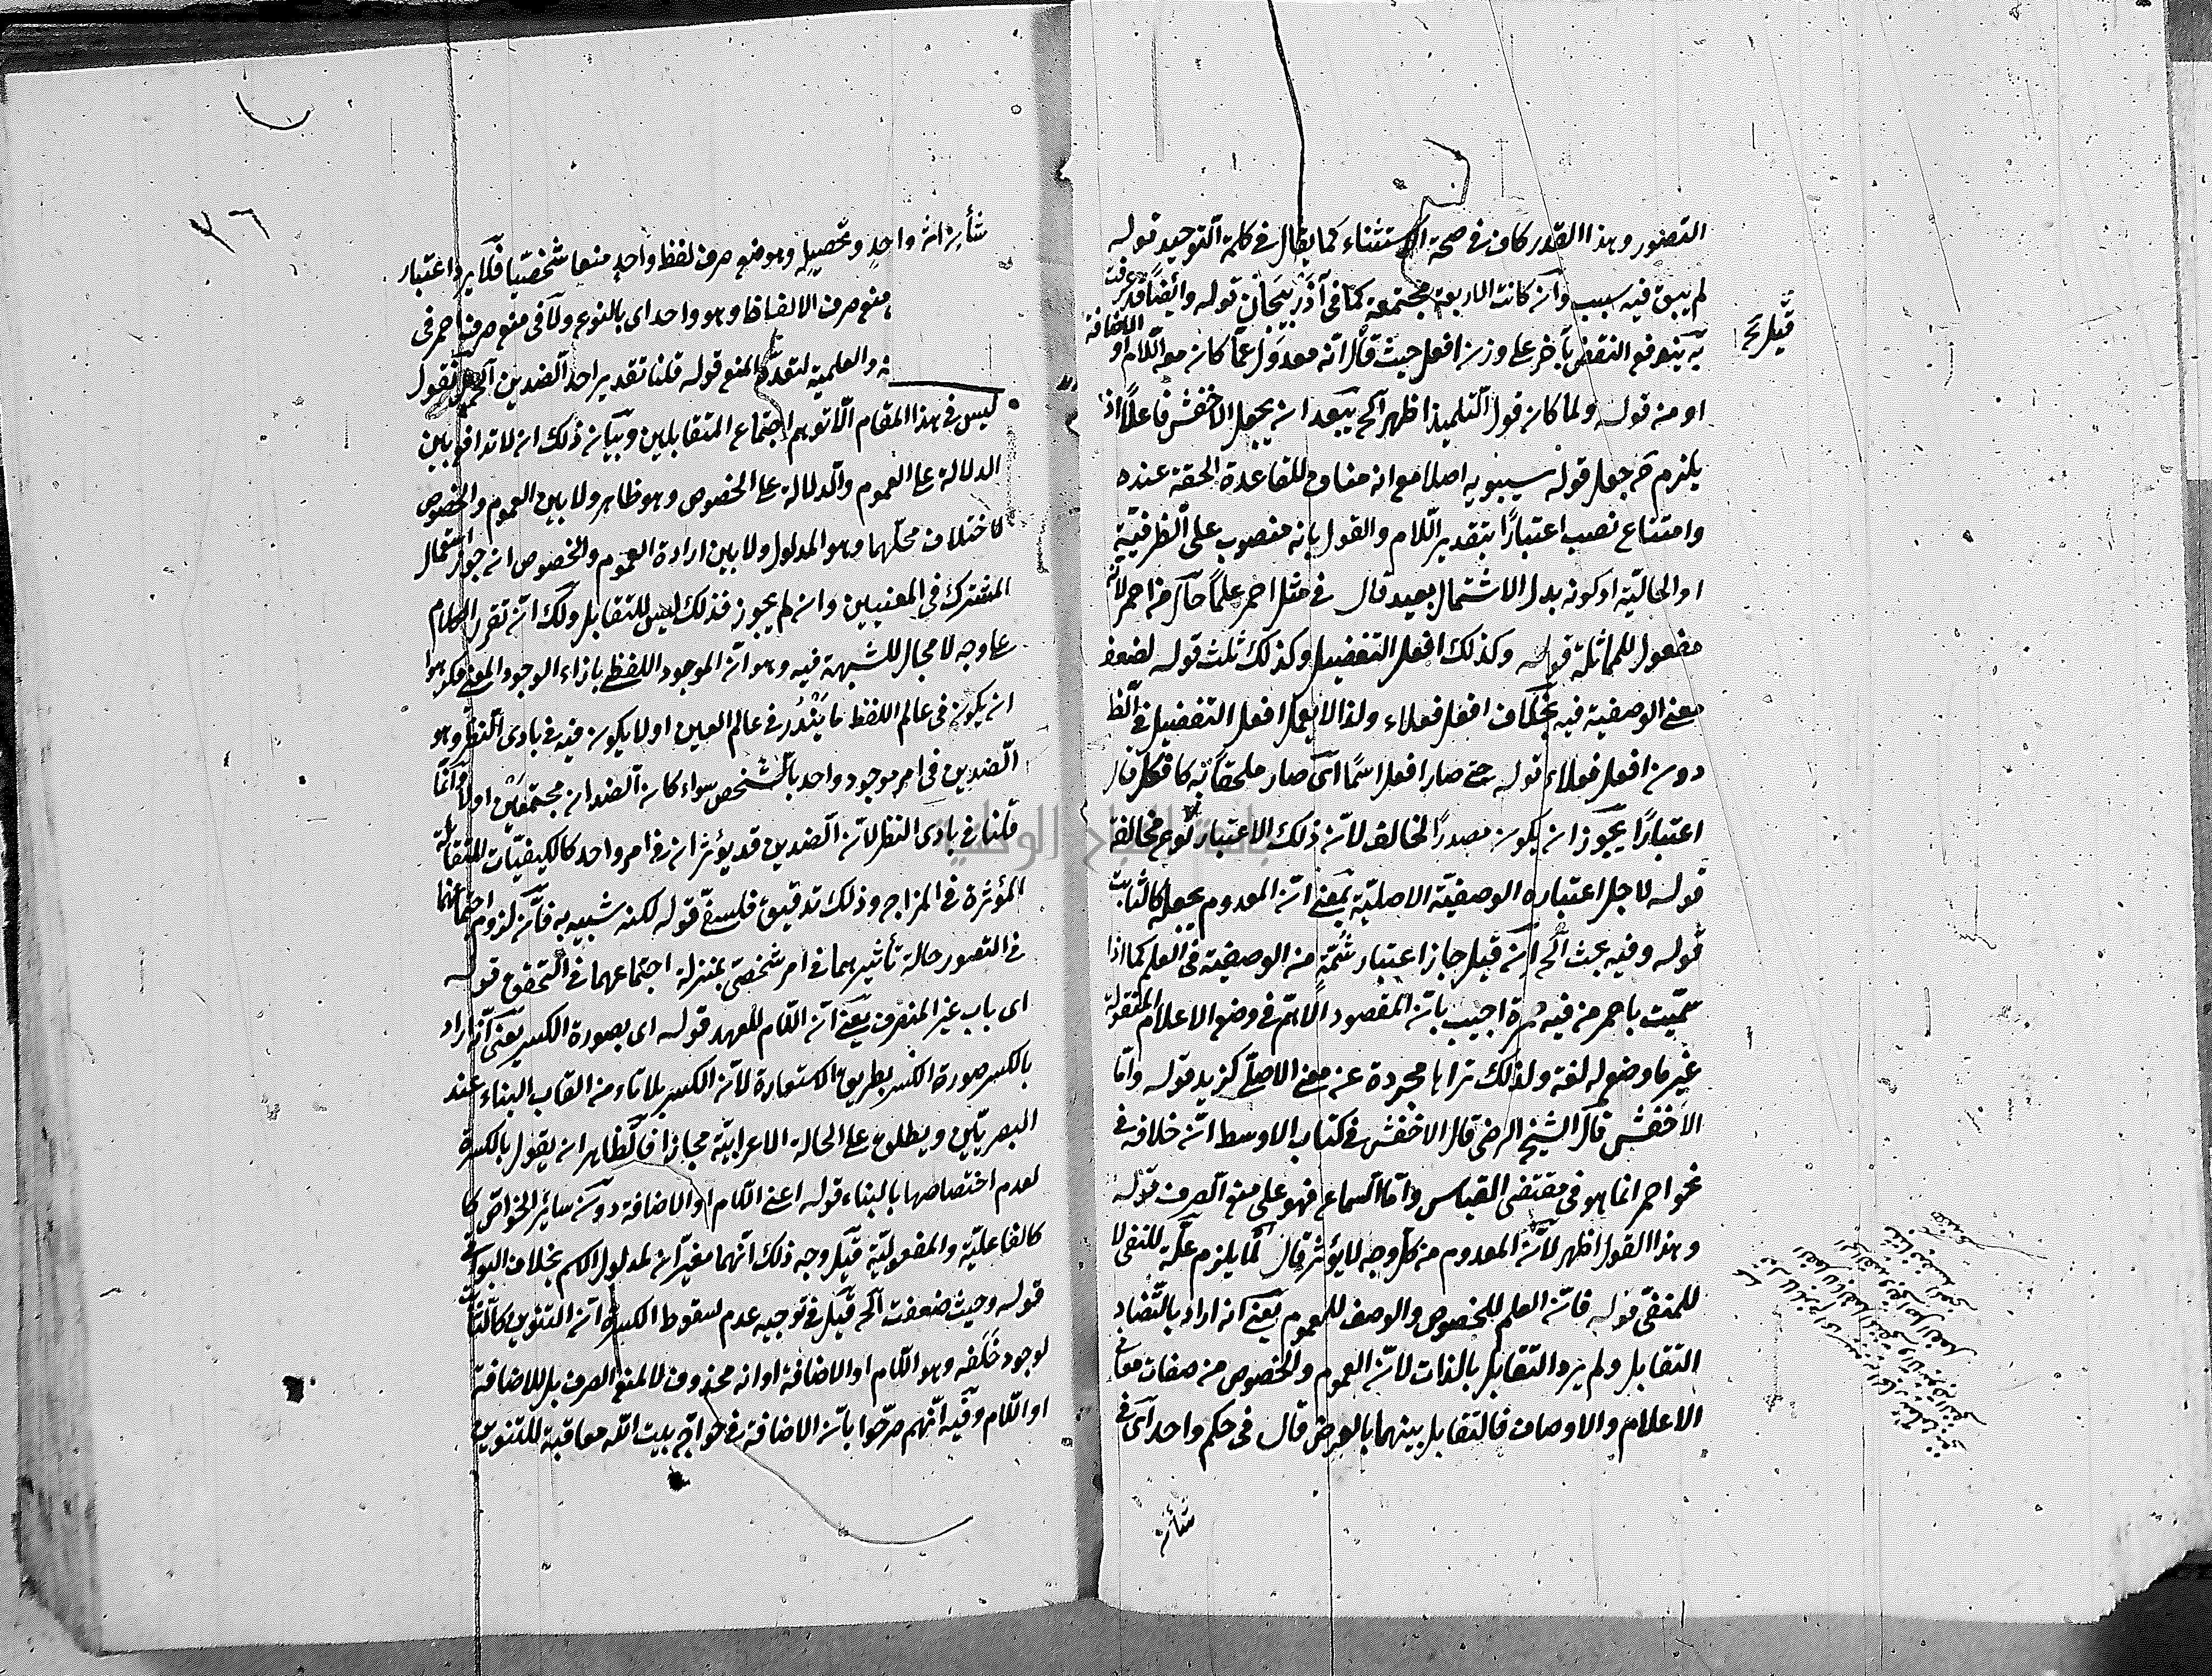 التصور وهذا القدر كاف فى صحة الاستثناء كما يقال فى كلمة التوحيد قوله
لم يبق فيه سبب وان كانت الاربعة مجتمعة كما فى آذربيجان قوله وايضا قد عرفت
قيل عليه يندفع النقض بآخر على وزن افعل حيث قال انه معدول عما كان معه اللام او الاضافة
او من قوله ولما كان قول التلميذ اظهر آلخ يبعد ان يجعل الاخفش فاعلا اذ
يلزم ح جعل قوله سيبويه اصلا مع انه مناف للقاعدة الحقة عنده
وامتناع نصب اعتبارًا بتقدير اللام والقول بانه منصوب على الظرفية
او الحالية او كونه بدل الاشتمال بعيد قال فى مثل احمر علمًا حال من احمر لانه
مفعول للمماثلة قوله وكذلك افعل التفضيل وكذلك ثلث قوله لضعف
معنى الوصفية فيه بخلاف افعل فعلاء ولذا لا يعمل افعل التفضيل فى الظ
دون افعل فعلاء قوله حتى صار افعل اسمًا اى صار ملحقًا به كافكل قال
اعتبارًا يجوز ان يكون مصدرًا لخالف لان ذلك الاعتبار نوع مخالفة
قوله لاجل اعتباره الوصفية الاصلية بمعنى ان المعدوم يجعله كالثابت
قوله وفيه بحث الخ ان قيل جاز اعتبار شمة من الوصفية فى العلم كما اذا
سميت باحمر من فيه حمرة اجيب بان المقصود الاهم فى وضع الاعلام المنقولة
غير ما وضع له لغة ولذلك تراها مجردة عن معنى الاصلى كزيد قوله واما
الاخفش قال الشيخ الرضى قال الاخفش فى كتاب الاوسط ان خلافه فى
نحو احمر انما هو فى مقتضى القياس واما السماع فهو على منع الصرف قوله
وهذا القول اظهر لان المعدوم من كل وجه لا يؤثر قال لما يلزم علة للنفى لا
للمنفى قوله فان العلم للخصوص والوصف للعموم يعنى انه اراد بالتضاد
التقابل ولم يرد التقابل بالذات لان العموم والخصوص من صفات معانى
الاعلام والاوصاف فالتقابل بينهما بالعرض قال فى حكم واحد اى فى
تأثير
٧٦
تأثيرانه واحد وتحصيله وهو منع صرف لفظ واحد منعا شخصيا فلا يرد اعتبار
منع صرف الالفاظ وهو واحد اى بالنوع ولا فى منع صرف احمر فى
والعلمية لتعدد المنع قوله قلنا تقدير احد الضدين آلخ نقول
ليس فى هذا المقام الا توهم اجتماع المتقابلين وبيان ذلك ان لا تدافع بين
الدلالة على العموم والدلالة على الخصوص وهو ظاهر ولا بين العموم والخصوص
لاختلاف محلهما وهو المدلول ولا بين ارادة العموم والخصوص ان جوز استعمال
المشترك فى المعنيين وان لم يجوز فذلك ليس للتقابل ولك ان تقرر الكلام
على وجه لا مجال للشبهة فيه وهو ان الموجود اللفظى بازاء الوجود المعنى
ان يكون فى عالم اللفظ ما يندر فى عالم العين او لا يكون فيه فى بادى النظر وهو
الضدين فى امر موجود واحد بالشخص سواء كان الضدان مجتمعين او لا وانما
قلنا فى بادى النظر لان الضدين قد يؤثران فى امر واحد كالكيفيات المتقابلة
المؤثرة فى المزاج وذلك تدقيق فلسفى قوله لكنه شبيه به فان لزوم اجتماعهما
فى التصور حالة تأثيرهما فى امر شخصى بمنزلة اجتماعهما فى التحقق قوله
اى باب غير المنصرف يعنى ان اللام للعهد قوله اى بصورة الكسر يعنى انه اراد
بالكسر صورة الكسر بطريق الاستعارة لان الكسر بلا تاء من القاب البناء عند
البصريين ويطلق على الحالة الاعرابية مجازا فالظاهر ان يقول بالكسرة
لعدم اختصاصها بالبناء قوله اعنى اللام او الاضافة دون سائر الخواص
كالفاعلية والمفعولية قيل وجه ذلك انهما مغيران لمدلول الاسم بخلاف البواقى
قوله وحيث ضعفت آلخ قيل فى توجيه عدم سقوط الكسرة ان التنوين كالثابت
لوجود خلفه وهو اللام او الاضافة او انه محذوف لا لمنع الصرف بل للاضافة
او اللام وفيه انهم صرحوا بان الاضافة فى حواج بيت الله معاقبة للتنوين